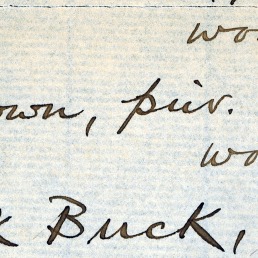 wo
own, priv.
wo
k Buck,